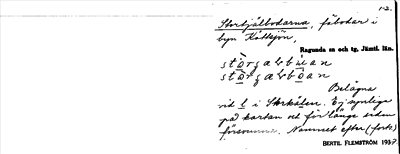 1-2.
Stortjälbodarna, fäbodar i
byn Kåttsjön,
Ragunda sn och tg, Jämtl. län.
Belägna
vid l i Storkälen. Ej synliga
på kartan och för länge sedan
försvunna. Namnet efter (forts)
BERTIL FLEMSTRÖM 1937